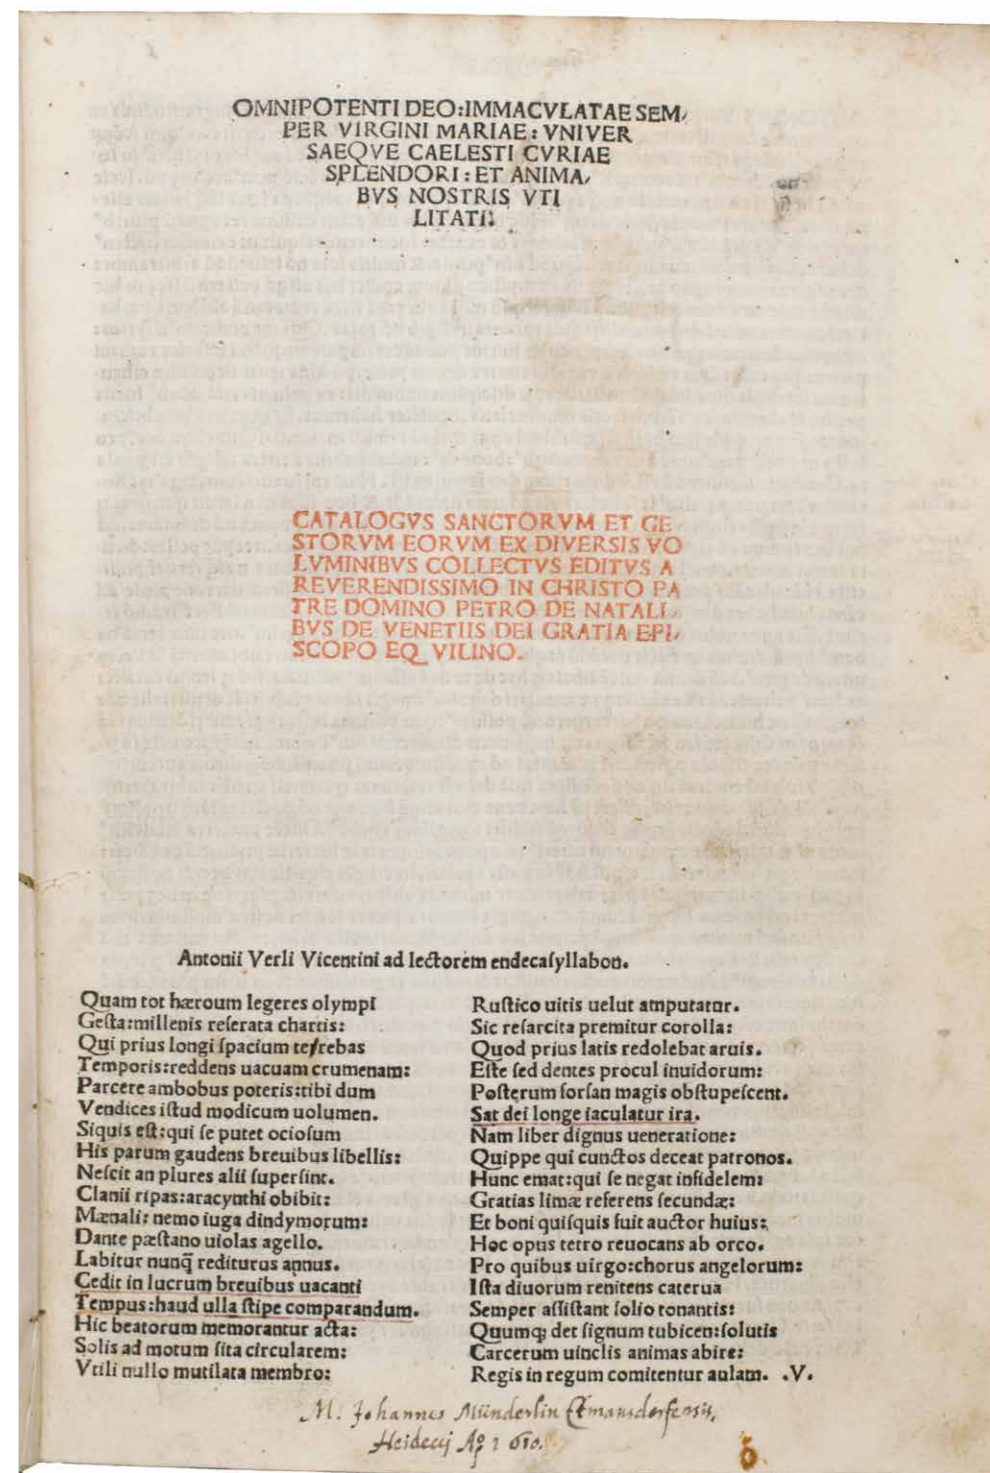 OMNIPOTENTI DEO:IMMACVLATAE SEM,
PER VIRGINI MARIAE: VNIVER
SAEQVE CAELESTI CVRIAE
SPLENDORI: ET ANIMA,
BVS NOSTRIS VTI
LITATI:
CATALOGVS SANCTORVM ET GE
STORVM EORVM EX DIVERSIS VO
LVMINIBVS COLLECTVS EDITVS A
REVERENDISSIMO IN CHRISTO PA
TRE DOMINO PETRO DE NATALI,
BVS DE VENETIIS DEI GRATIA EPI,
SCOPO EQVILINO.
Antonii Verli Vicentini ad lectorem endecaſyllabon.
Quam tot hæroum legeres olympi
Geſta:millenis reſerata chartis:
Qui prius longi ſpacium terebas
Temporis:reddens uacuam crumenam:
Parcere ambobus poteris:tibi dum
Vendices iſtud modicum uolumen.
Siquis eſt:qui ſe putet ocioſum
His parum gaudens breuibus libellis:
Neſcit an plures alii ſuperſint.
Clanii ripas:aracynthi obibit:
Mænali: nemo iuga dindymorum:
Dante pæſtano uiolas agello.
Labitur nunq̃ rediturus annus.
Cedit in lucrum breuibus uacanti
Tempus:haud ulla ſtipe comparandum.
Hic beatorum memorantur acta:
Solis ad motum ſita circularem:
Vtili nullo mutilata membro:
Ruſtico uitis uelut amputatur.
Sic reſarcita premitur corolla:
Quod prius latis redolebat aruis.
Eſte ſed dentes procul inuidorum:
Poſterum forſan magis obſtupeſcent.
Sat dei longe iaculatur ira.
Nam liber dignus ueneratione:
Quippe qui cunctos deceat patronos.
Hunc emat:qui ſe negat infidelem:
Gratias limæ referens ſecundæ:
Et boni quiſquis fuit auctor huius:
Hoc opus tetro reuocans ab orco.
Pro quibus uirgo:chorus angelorum:
Iſta diuorum renitens caterua
Semper aſſiſtant ſolio tonantis:
Quumq; det ſignum tubicen:ſolutis
Carcerum uinclis animas abire:
Regis in regum comitentur aulam. .V.
M. Johannes Münderlin
Heidecij Aō 1610.